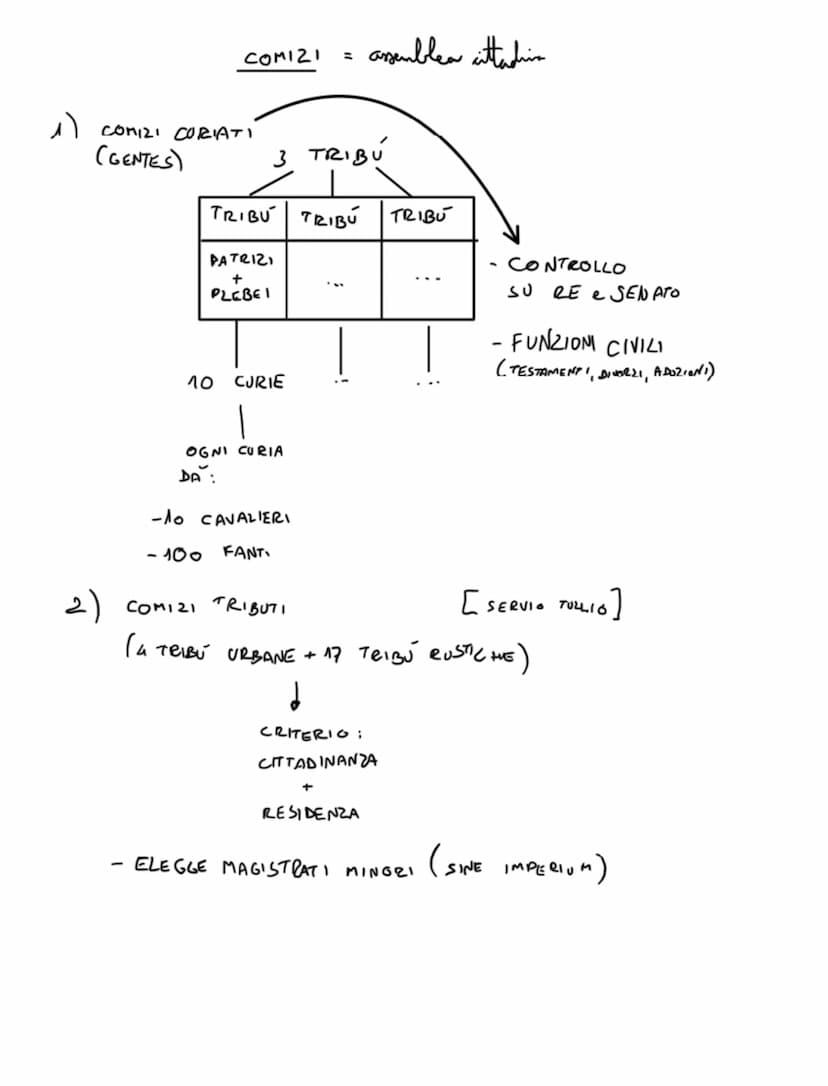 COMIZI = assemblea cittadina
1) COMIZI CURIATI
(GENTES)
3 TRIBÚ
TRIBÚ TRIBÚ TRIBÚ
PATRIZI
+
PLEBEI
...
...
- CONTROLLO
SU RE e SENATO
- FUNZIONI CIVILI
(TESTAMENTI, DIVORZI, ADOZIONI)
10 CURIE
...
...
OGNI CURIA
DÀ:
-10 CAVALIERI
-100 FANTI
2) COMIZI TRIBUTI [SERVIO TULLIO]
(4 TRIBÚ URBANE + 17 TRIBÚ RUSTICHE)
CRITERIO:
CITTADINANZA
+
RESIDENZA
- ELEGGE MAGISTRATI MINORI (SINE IMPERIUM)